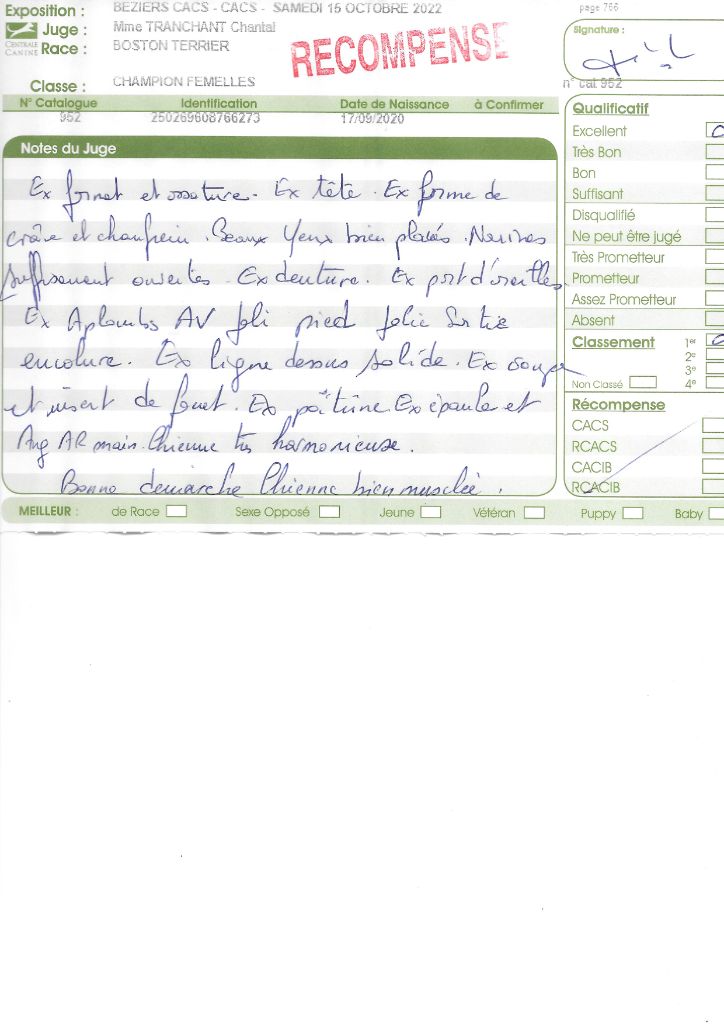 Exposition : BEZIERS CACS - CACS - SAMEDI 15 OCTOBRE 2022
page 766
CENTRALE CANINE
Juge : Mme TRANCHANT Chantal
Race : BOSTON TERRIER
RECOMPENSE
Signature :
Classe : CHAMPION FEMELLES
n° cat 952
N° Catalogue Identification Date de Naissance à Confirmer
952 250269608766273 17/09/2020
Notes du Juge
Ex format et ossature. Ex tête. Ex forme de
crâne et chanfrein. Beaux yeux bien placés. Narines
suffisament ouvertes. Ex denture. Ex port d'oreilles
Ex Aplombs AV joli pied jolie sortie
encolure. Ex ligne dessus solide. Ex
et insert de fouet. Ex poitrine Ex épaule et
Ang AR main. Chienne très harmonieuse.
Bonne démarche Chienne bien musclée.
Qualificatif
Excellent
Très Bon
Bon
Suffisant
Disqualifié
Ne peut être jugé
Très Prometteur
Prometteur
Assez Prometteur
Absent
Classement 1er
2e
3e
Non Classé 4e
Récompense
CACS
RCACS
CACIB
RCACIB
MEILLEUR : de Race Sexe Opposé Jeune Vétéran Puppy Baby